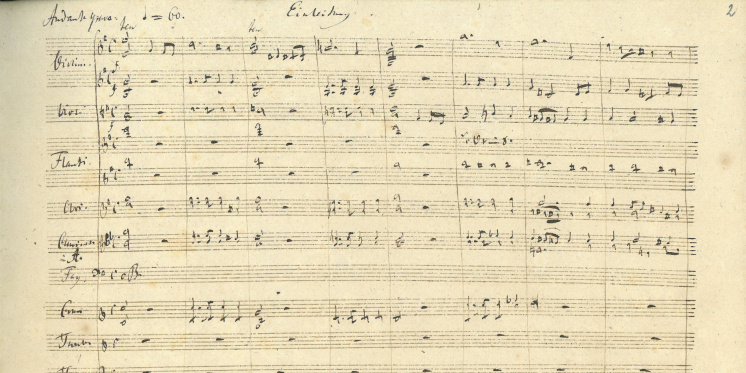 Andante grave. ♩ = 60. Einleitung 2
ten ten
Violini.
Viole
Flauti.
Oboi.
Clarinetti
in A.
Fag. c. B.
Corni
Trombe